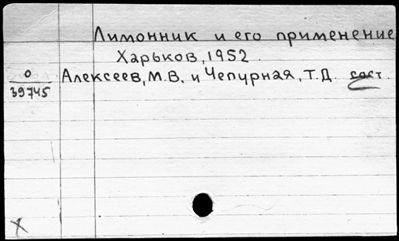 Лимонник и его применение
Харьков, 1952.
О
39745
Алексеев, М.В. и Чепурная, Т.Д. сост.
X